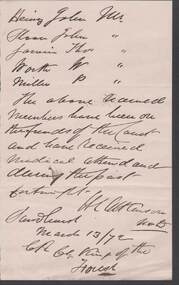 Henry John Mr
John "
Thos "
Worth W "
Miller P "
The above named
Members have been on
the funds of the Court
and have received
medical attend and
during the past
fortnight
H L Atkinson
Sandhurst
March 13/72
C.R. Ct King of the
Forest